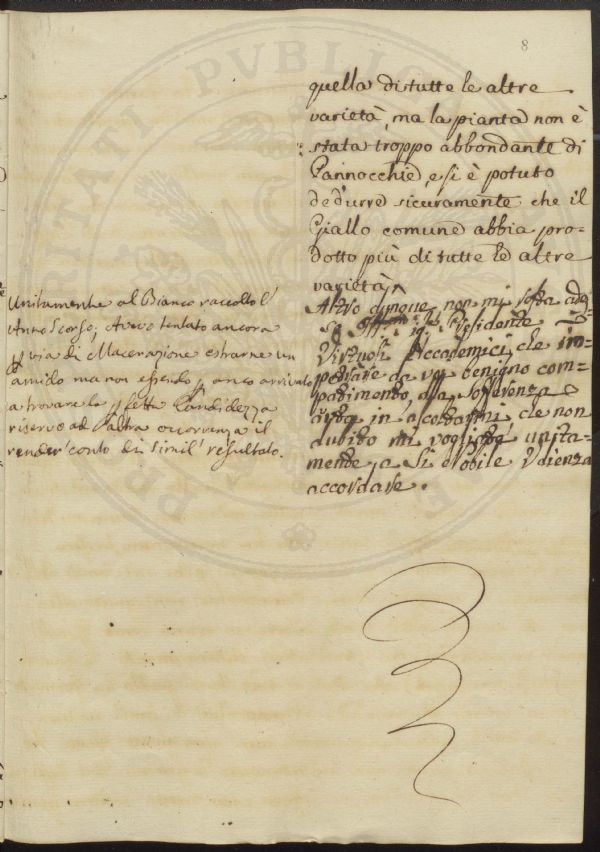 8
quella di tutte le altre
varietà, ma la pianta non è
stata troppo abbondante di
Pannocchie, e si è potuto
dedurre sicuramente che il
Giallo comune abbia pro-
dotto più di tutte le altre
varietà.
Altro dunque non mi resta
Presidente
Virtuosi Accademici, che im-
petrare da voi benigno com-
patimento, alla sofferenza
avuta in ascoltarmi che non
dubito mi vogliate unita-
mente a Sì Nobile Udienza
accordare.
Unitamente al Bianco raccolto l'
Anno Scorso, Avevo tentato ancora
p via di Macerazione estrarne un
amido ma non essendo p anco arrivato
a trovare la pfetta Candidezza
riservo ad altra occorenza il
render conto di simil resultato.
PRO
ITATI PVBLICA